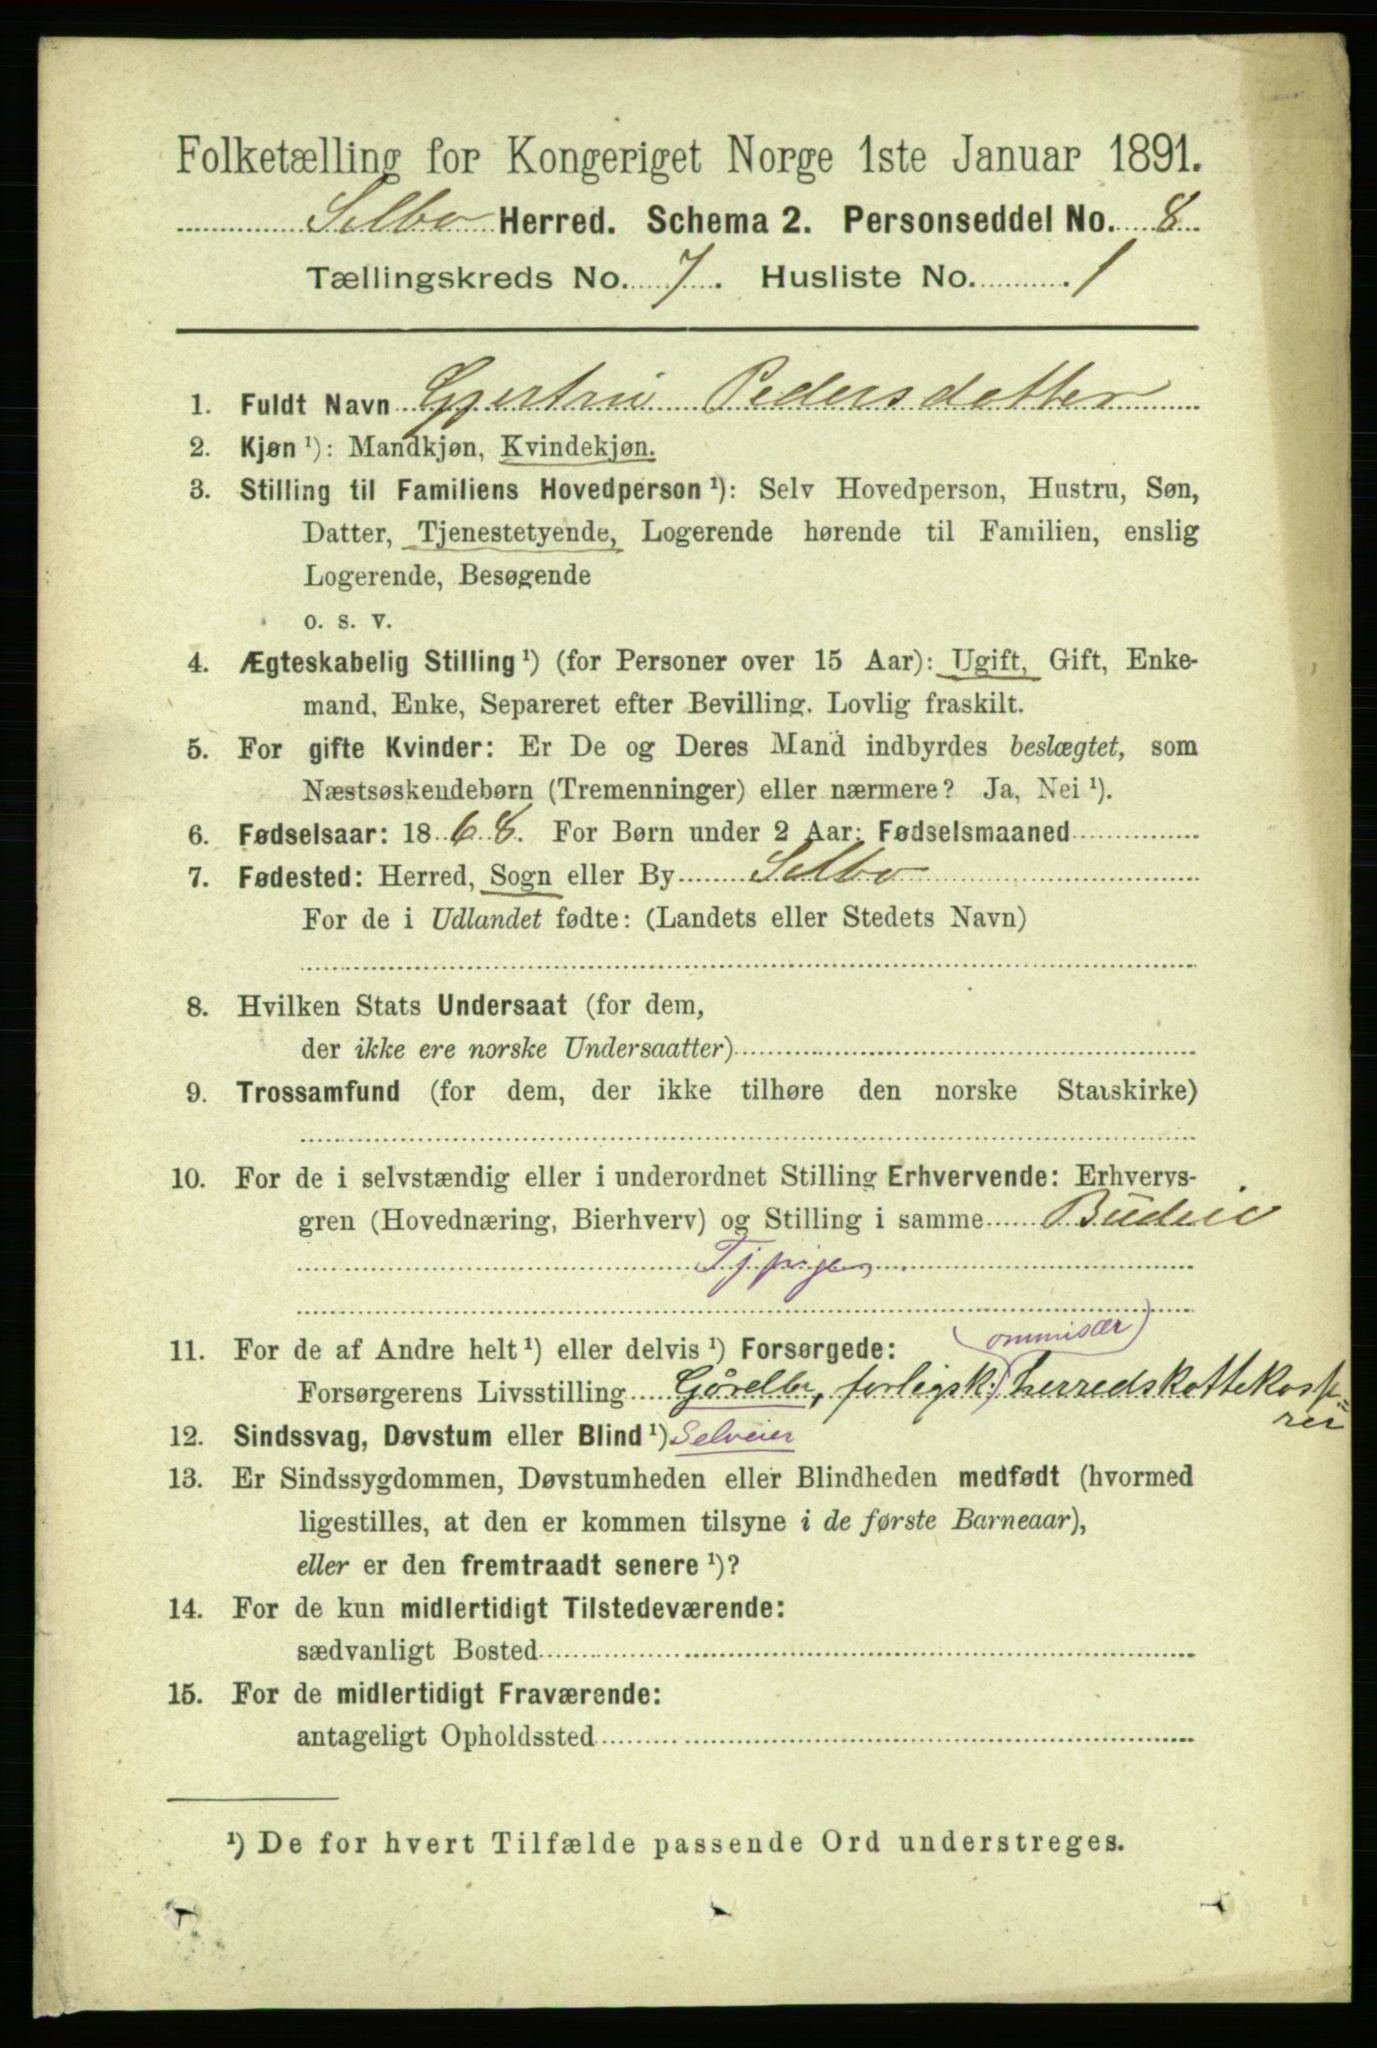 Folketælling for Kongeriget Norge 1ste Januar 1891.
Selbo Herred. Schema 2. Personseddel No. 8
Tællingskreds No. 7. Husliste No. 1
1. Fuldt Navn Gjertru Pedersdatter
2. Kjøn ¹): Mandkjøn, Kvindekjøn.
3. Stilling til Familiens Hovedperson ¹): Selv Hovedperson, Hustru, Søn,
Datter, Tjenestetyende, Logerende hørende til Familien, enslig
Logerende, Besøgende
o. s. v.
4. Ægteskabelig Stilling ¹) (for Personer over 15 Aar): Ugift, Gift, Enke-
mand, Enke, Separeret efter Bevilling. Lovlig fraskilt.
5. For gifte Kvinder: Er De og Deres Mand indbyrdes beslægtet, som
Næstsøskendebørn (Tremenninger) eller nærmere? Ja, Nei ¹).
6. Fødselsaar: 1868. For Børn under 2 Aar: Fødselsmaaned
7. Fødested: Herred, Sogn eller By Selbo
For de i Udlandet fødte: (Landets eller Stedets Navn)
8. Hvilken Stats Undersaat (for dem,
der ikke ere norske Undersaatter)
9. Trossamfund (for dem, der ikke tilhøre den norske Statskirke)
10. For de i selvstændig eller i underordnet Stilling Erhvervende: Erhvervs-
gren (Hovednæring, Bierhverv) og Stilling i samme Budeie
Tj.pigen
11. For de af Andre helt ¹) eller delvis ¹) Forsørgede: (ommisær)
Forsørgerens Livsstilling Gårdbr, forligsk:) herredskattekasse-
rer
12. Sindssvag, Døvstum eller Blind ¹) Selveier
13. Er Sindssygdommen, Døvstumheden eller Blindheden medfødt (hvormed
ligestilles, at den er kommen tilsyne i de første Barneaar),
eller er den fremtraadt senere ¹)?
14. For de kun midlertidigt Tilstedeværende:
sædvanligt Bosted
15. For de midlertidigt Fraværende:
antageligt Opholdssted
¹) De for hvert Tilfælde passende Ord understreges.